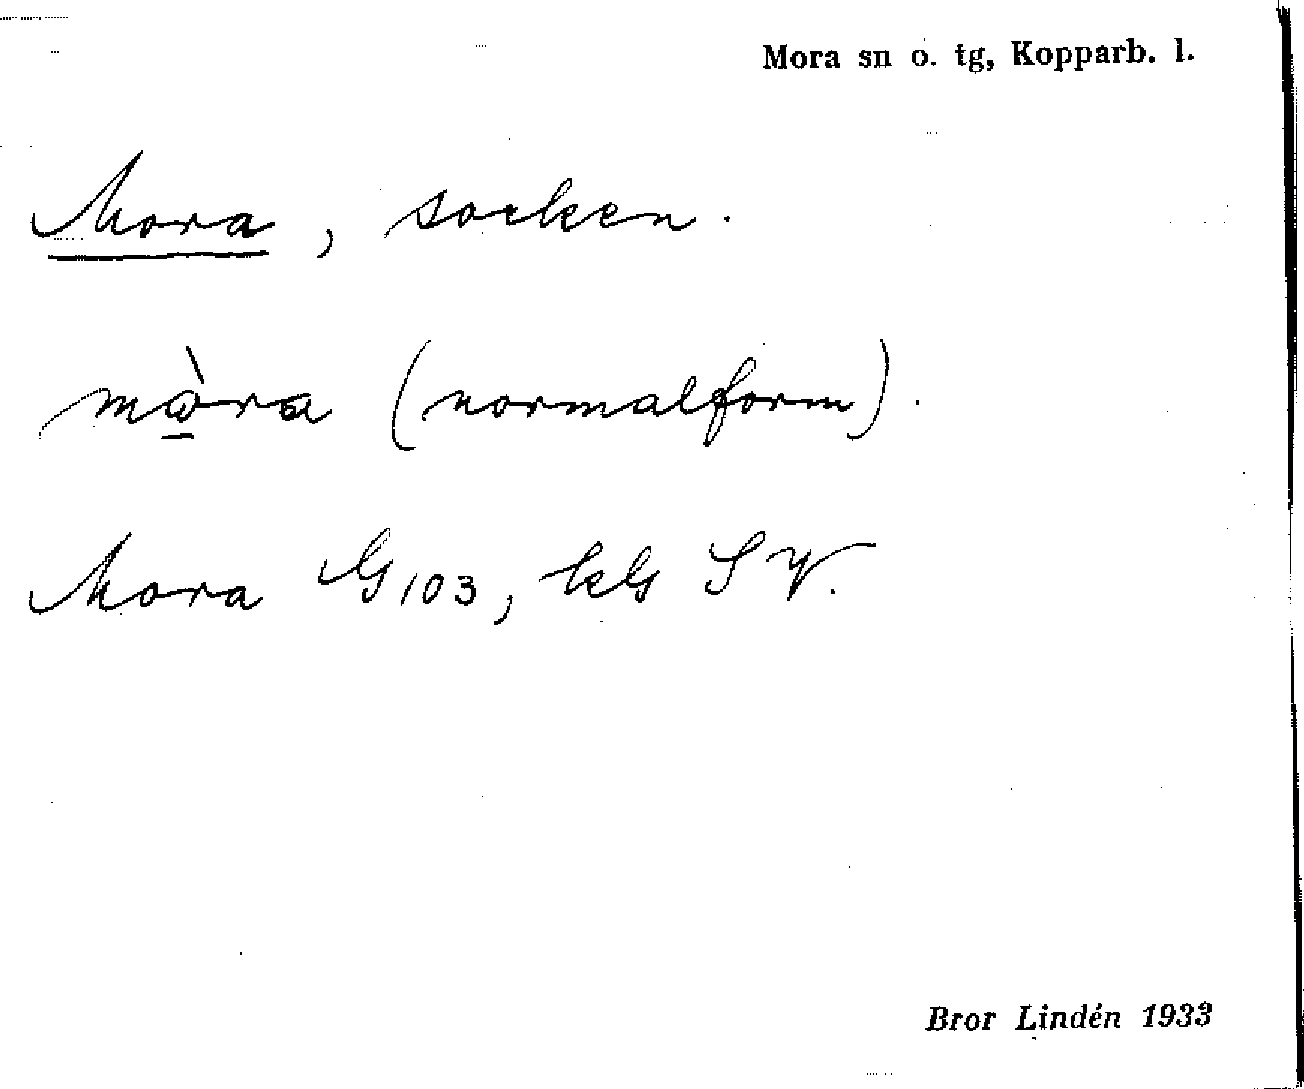 Mora sn o. tg, Kopparb. l.
Mora, socken.
mȯ̱̀ra (normalform).
Mora G 103, kbl SV.
Bror Lindén 1933